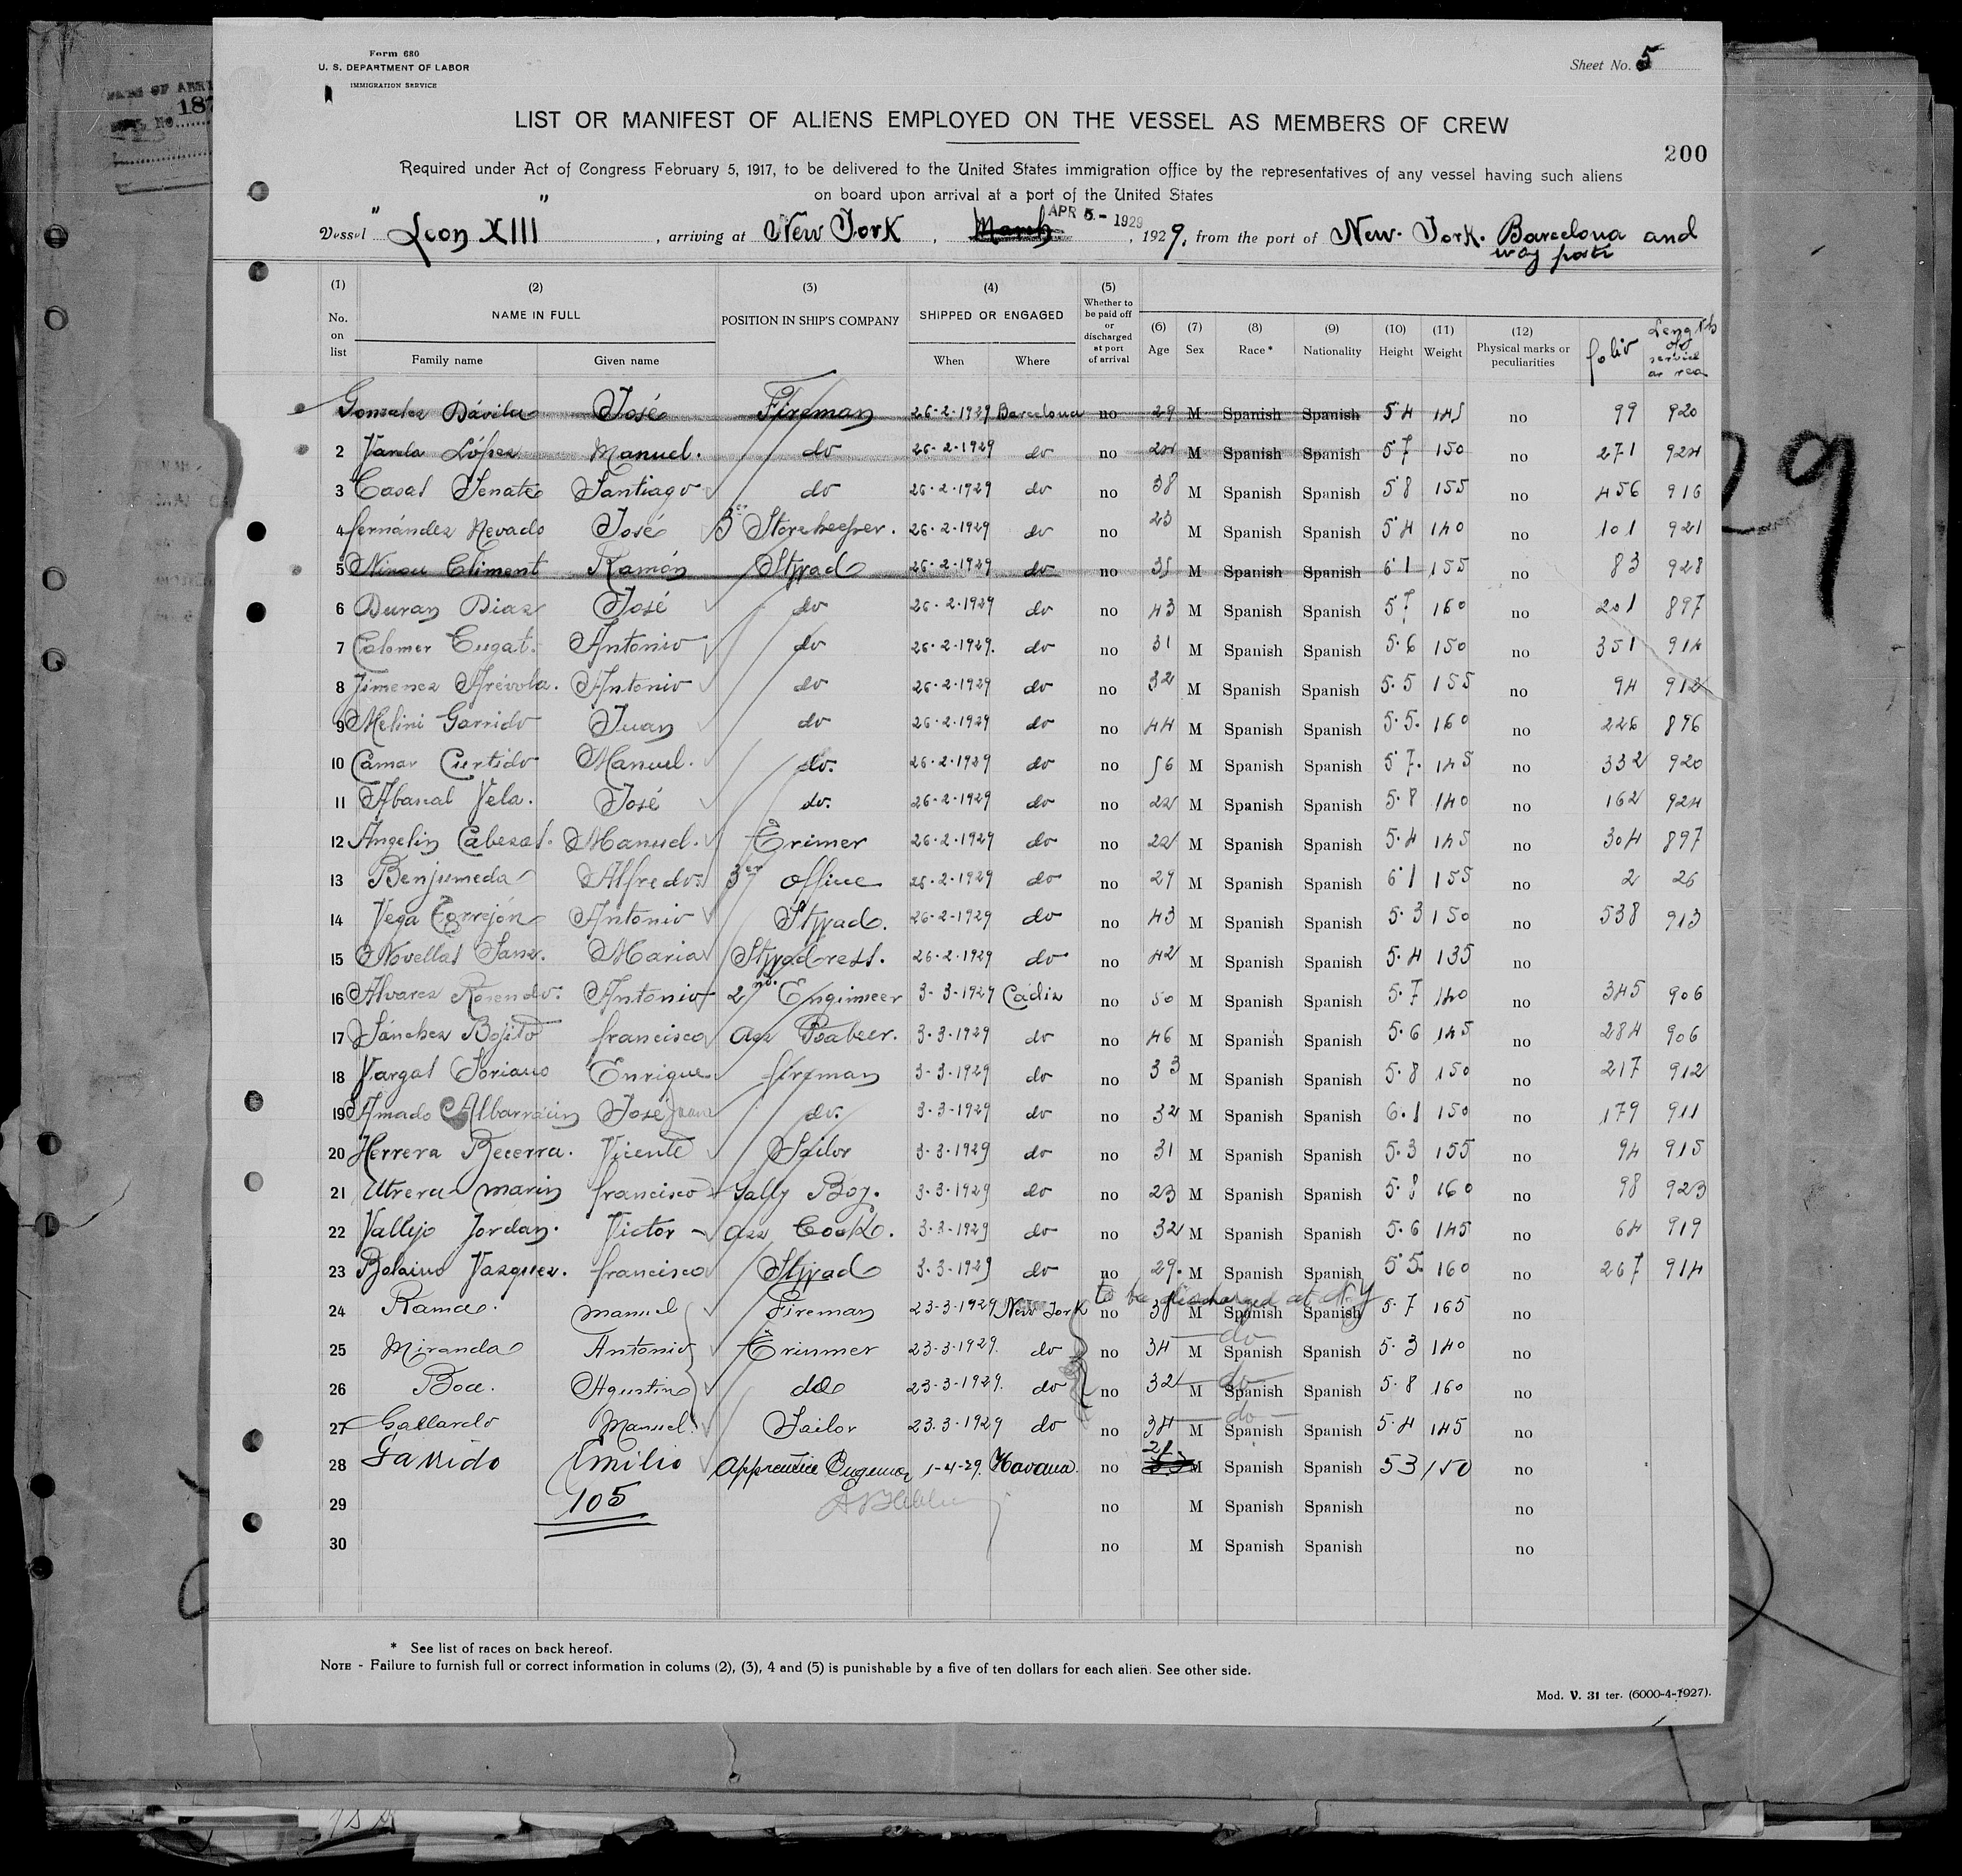 Form 680
U. S. DEPARTMENT OF LABOR
IMMIGRATION SERVICE
Sheet No. 5
LIST OR MANIFEST OF ALIENS EMPLOYED ON THE VESSEL AS MEMBERS OF CREW
200
Required under Act of Congress February 5, 1917, to be delivered to the United States immigration office by the representatives of any vessel having such aliens
on board upon arrival at a port of the United States
Vessel "Leon XIII", arriving at New York, March APR 5 - 1929, 1929, from the port of New-York. Barcelona and
way ports
(1) No. on list (2) NAME IN FULL Family name Given name (3) POSITION IN SHIP'S COMPANY (4) SHIPPED OR ENGAGED When Where (5) Whether to be paid off or discharged at port of arrival (6) Age (7) Sex (8) Race * (9) Nationality (10) Height (11) Weight (12) Physical marks or peculiarities folio Length of service
Gonzalez Dávila José Fireman 26-2-1929 Barcelona no 29 M Spanish Spanish 5 4 145 no 99 920
2 Varela López Manuel. do 26-2-1929 do no 24 M Spanish Spanish 5 7 150 no 271 924
3 Casas Senate Santiago do 26-2-1929 do no 38 M Spanish Spanish 5 8 155 no 456 916
4 fernández Nevado José 3er Storekeeper. 26-2-1929 do no 23 M Spanish Spanish 5 4 140 no 101 921
5 Ninou Climent Ramón 26-2-1929 do no 35 M Spanish Spanish 6 1 155 no 83 928
6 Duran Diaz José do 26-2-1929 do no 43 M Spanish Spanish 160 no 201 897
7 Colomer Cugat. Antonio do 26-2-1929. do no 31 M Spanish Spanish 5.6 150 no 351 914
8 Jimenez Arévola. Antonio do 26-2-1929 do no 32 M Spanish Spanish 5.5 155 no 94 912
9 Melini Garrido Juan do 26-2-1929 do no 44 M Spanish Spanish 5.5. 160 no 226 896
10 Camar Curtido Manuel. do. 26-2-1929 do no 56 M Spanish Spanish 5 7. 145 no 332 920
11 Abascal Vela. José do. 26-2-1929 do no 22 M Spanish Spanish 5.8 140 no 162 924
12 Angelin Cabezas. Manuel. Trimer 26-2-1929 do no 22 M Spanish Spanish 5.4 145 no 304 897
13 Benjumeda Alfredo 3er office 26-2-1929 do no 29 M Spanish Spanish 6 1 155 no 2 26
14 Vega Torrejón Antonio 26-2-1929 do no 43 M Spanish Spanish 5.3 150 no 538 913
15 Novellas Sanz. Maria 26-2-1929 do no 42 M Spanish Spanish 5.4 135 no
16 Alvarez Rosendo. Antonio 2nd. Enginneer 3-3-1929 Cadiz no 50 M Spanish Spanish 5.7 140 no 345 906
17 Sánchez Bojito francisco 3-3-1929 do no 46 M Spanish Spanish 5.6 145 no 284 906
18 Vargas Soriano Enrique fireman 3-3-1929 do no 33 M Spanish Spanish 5.8 150 no 217 912
19 Amado José do. 3-3-1929 do no 32 M Spanish Spanish 6.1 150 no 179 911
20 Herrera Becerra. Vicente Sailor 3-3-1929 do no 31 M Spanish Spanish 5.3 155 no 94 915
21 Utrera marin francisco Gally Boy. 3-3-1929 do no 23 M Spanish Spanish 5.8 160 no 98 923
22 Vallejo Jordan. Victor - ass Cook. 3-3-1929 do no 32 M Spanish Spanish 5.6 145 no 64 919
23 Bolaino Vazquez. francisco 3-3-1929 do no 29. M Spanish Spanish 5 5. 160 no 267 914
to be discharged at N.Y
24 Rama. manuel Fireman 23-3-1929 New York no 38 M Spanish Spanish 5.7 165 no
25 Miranda Antonio Trimmer 23-3-1929. do no 34 M do Spanish Spanish 5.3 140 no
26 Boa. Agustin do 23-3-1929. do no 32 M do Spanish Spanish 5.8 160 no
27 Gallardo Manuel. Sailor 23.3-1929 do no 34 M do Spanish Spanish 5.4 145 no
28 Garrido Emilio Apprentice 1-4-29. Havana. no 21 M Spanish Spanish 53 150 no
29 105 no M Spanish Spanish no
30 no M Spanish Spanish no
* See list of races on back hereof.
NOTE - Failure to furnish full or correct information in colums (2), (3), 4 and (5) is punishable by a five of ten dollars for each alien. See other side.
Mod. V. 31 ter. (6000-4-1927).